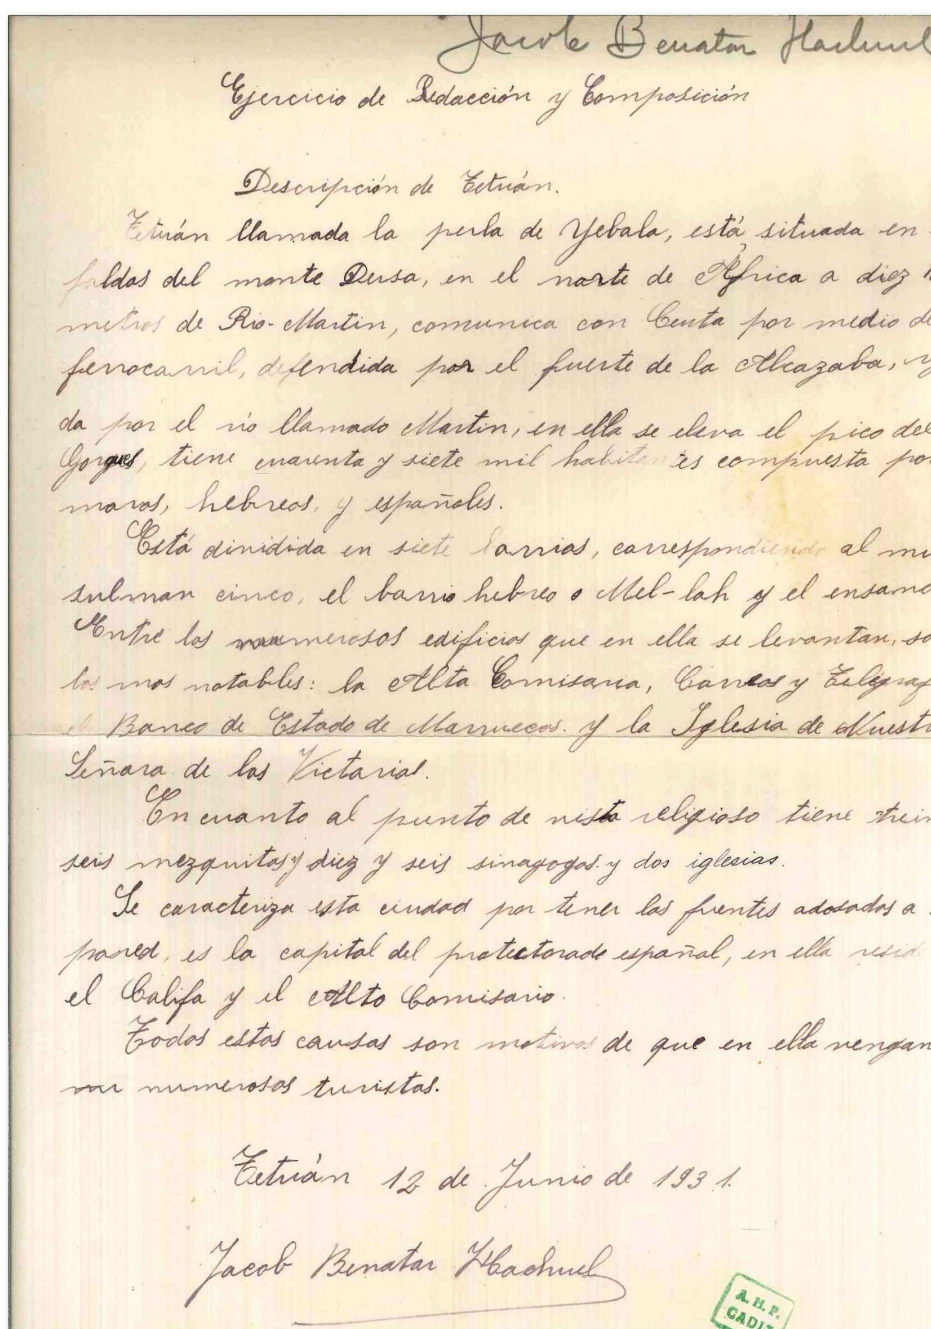 Jacob Benatar Hachuel
Ejercicio de Redacción y Composición
Descripción de Tetuán.
Tetuán llamada la perla de Yebala, está situada en
faldas del monte Dersa, en el norte de África a diez
metros de Rio-Martin, comunica con Ceuta por medio de
ferrocarril, defendida por el fuerte de la Alcazaba, 
da por el río llamado Martin, en ella se eleva el pico del
Gorgues, tiene cuarenta y siete mil habitantes compuesta por
moros, hebreos, y españoles.
Está dividida en siete barrios, correspondiendo al mu
sulman cinco, el barrio hebreo o Mel-lah y el ensanc
Entre los numerosos edificios que en ella se levantan, so
los mas notables: la Alta Comisaria, Correos y Telégraf
el Banco de Estado de Marruecos. y la Iglesia de Nuestr
Señora de las Victorias.
En cuanto al punto de vista religioso tiene trein
seis mezquitas y diez y seis sinagogas y dos iglesias.
Se caracteriza esta ciudad por tener las fuentes adosadas a
pared, es la capital del protectorado español, en ella resid
el Califa y el Alto Comisario.
Todas estas causas son motivos de que en ella vengan
numerosos turistas.
Tetuán 12 de Junio de 1931.
Jacob Benatar Hachuel
A.H.P.
CADIZ